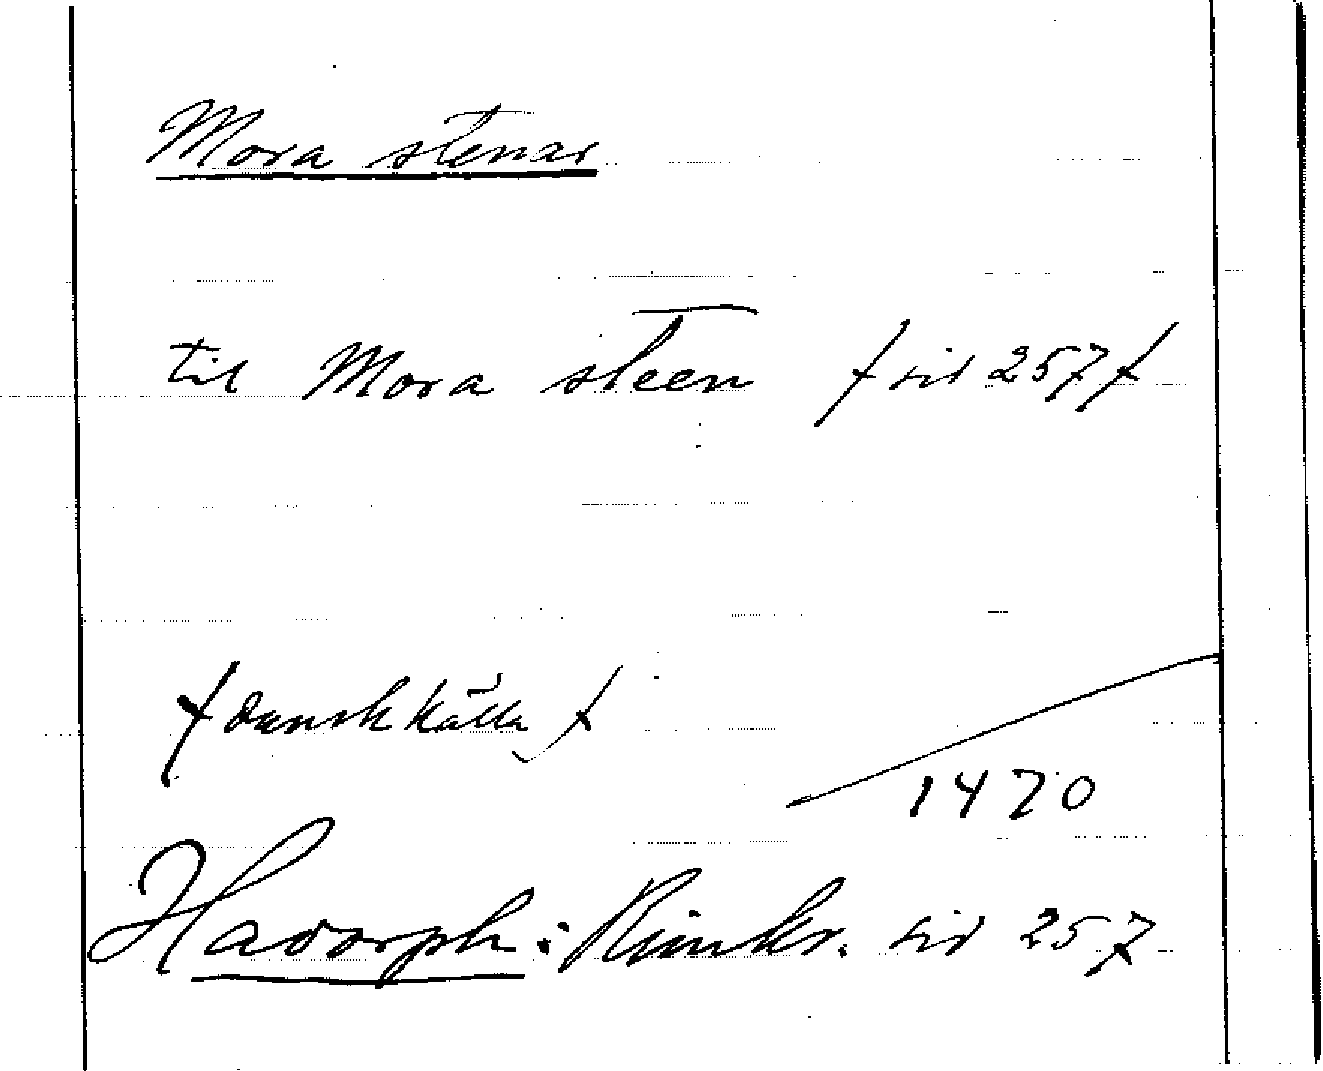 Mora stenar
til Mora steen / sid 257 /
/ dansk källa /
1470
Hadorph: Rimkr. sid 257